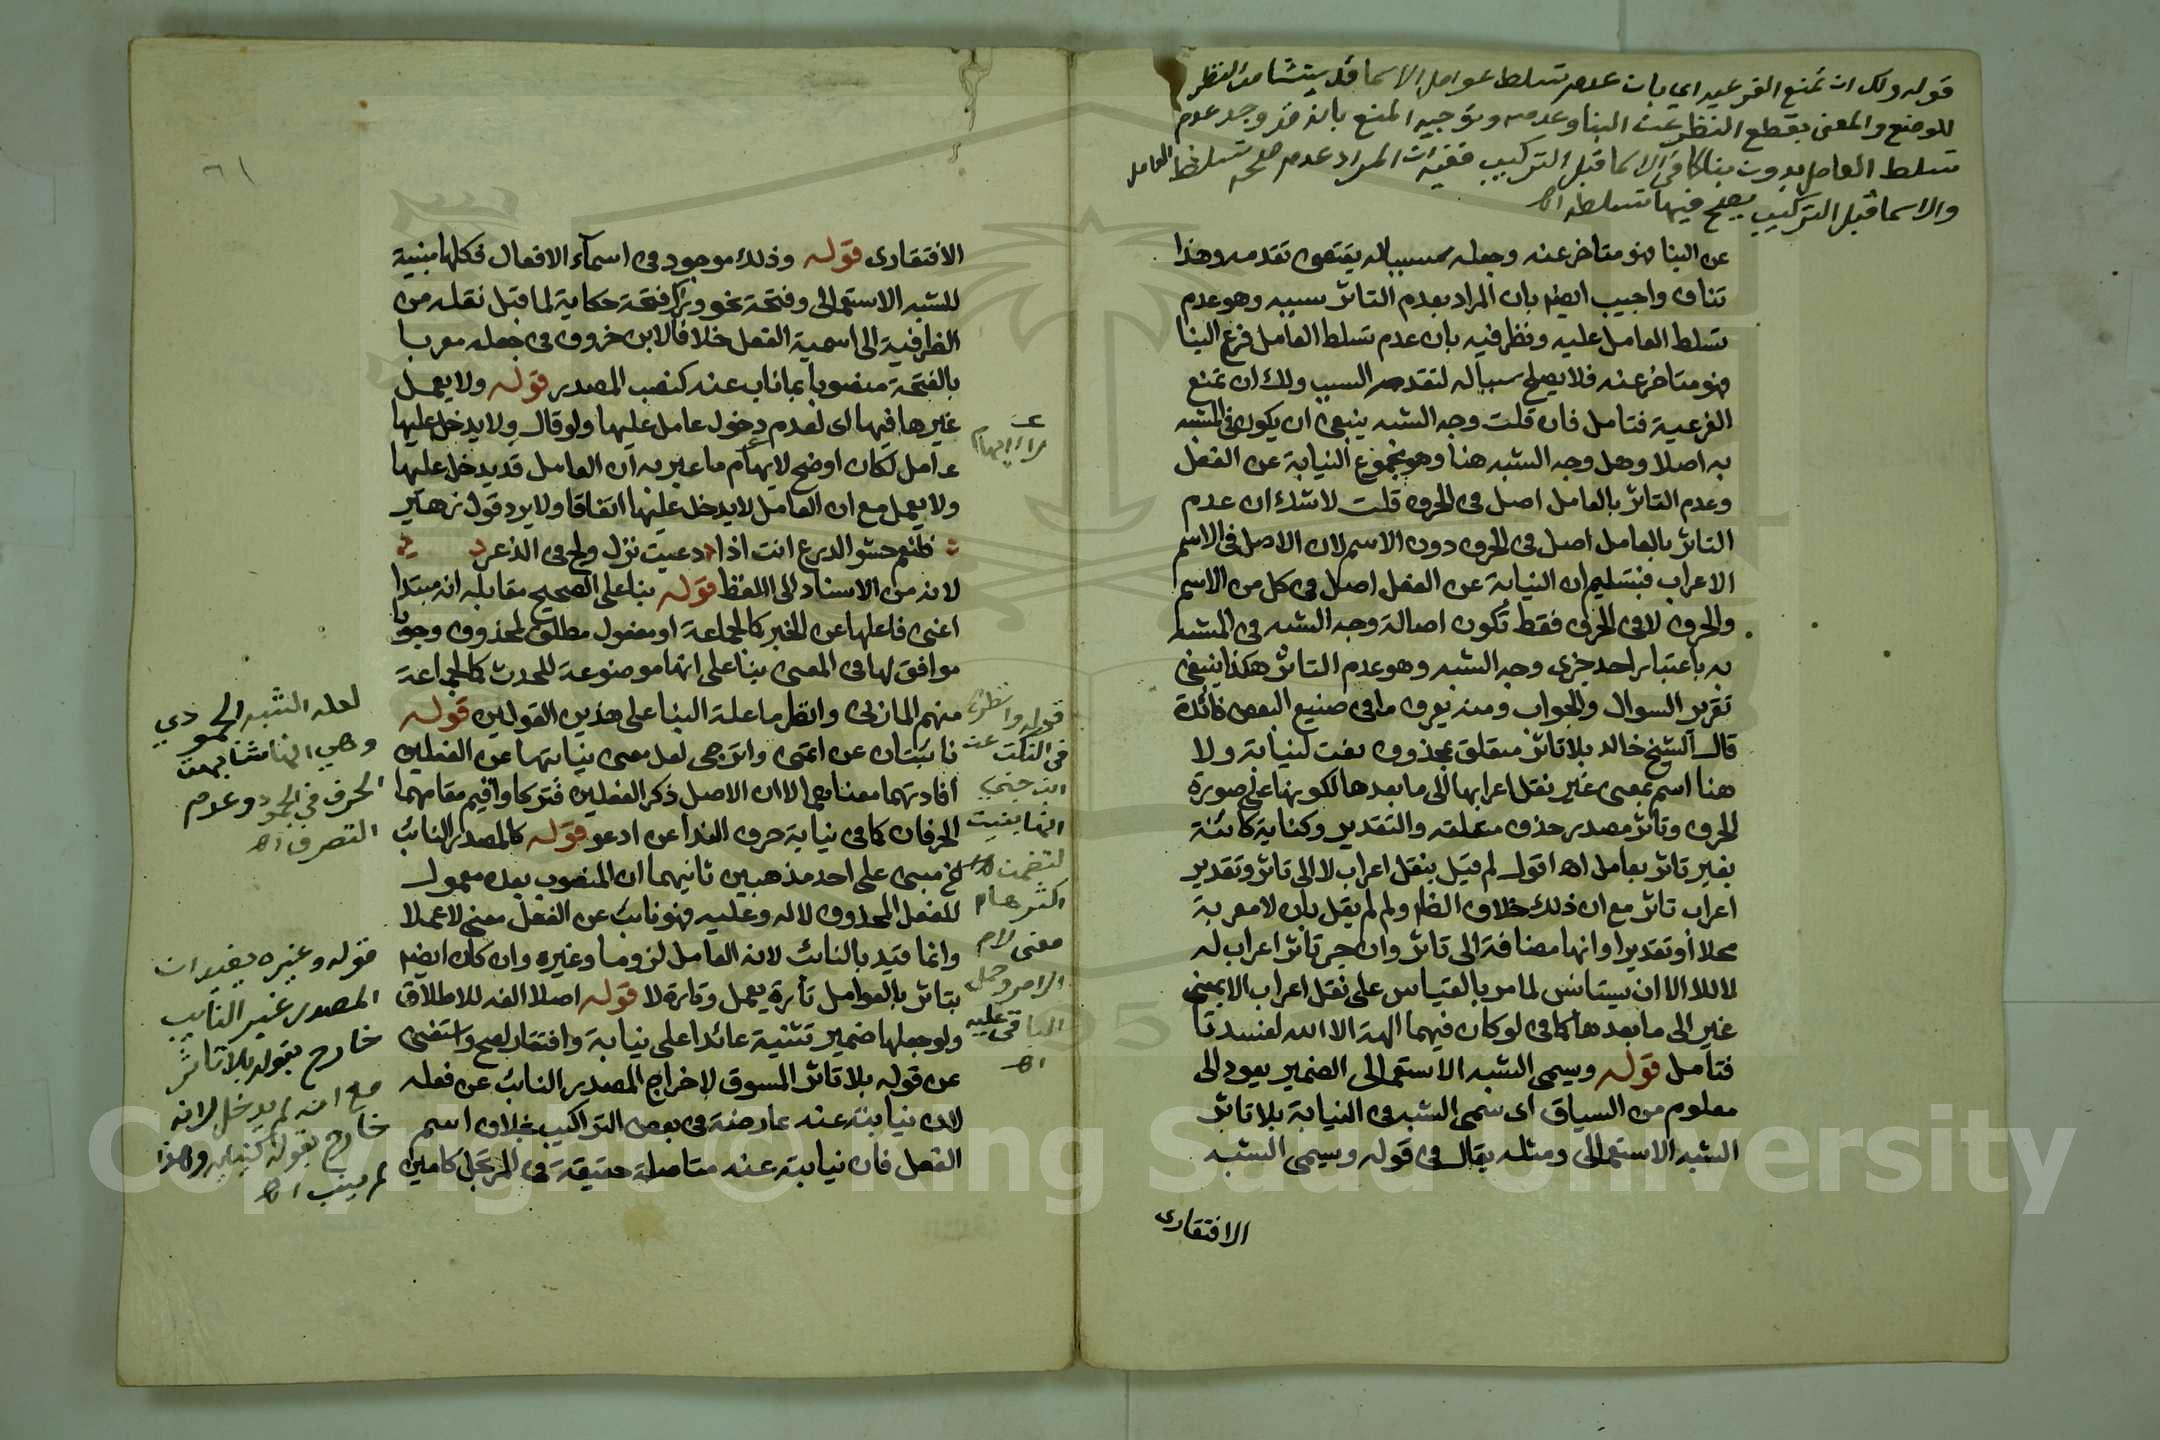 قوله ولك ان تمنع الفرعيه اي بان عدم تسلط عوامل الاسما قد يتشا من النظر
للوضع والمعنى بقطع النظر عن البنا وعدمه وتوجيه المنع بانه قد وجد عدم
تسلط العامل بدون بنا كما في الاسما قبل التركيب ففيه ان المراد عدم صلحه تسلط العامل
والاسما قبل التركيب يصلح فيها تسلطه اه
عن البنا فهو متاخر عنه وجعله سببا له يقتضى تقدمه وهذا
تناف واجيب ايضا بان المراد بعدم التاثر سببه وهو عدم
تسلط العامل عليه ونظر فيه بان عدم تسلط العامل فرع البنا
فهو متاخر عنه فلا يصلح سببا له لتقدم السبب ولك ان تمنع
الفرعية فتامل فان قلت وجه الشبه ينبغى ان يكون فى المشبه
به اصلا وهل وجه الشبه هنا وهو مجموع النيابة عن الفعل
وعدم التاثر بالعامل اصل فى الحرف قلت لا شك ان عدم
التاثر بالعامل اصل فى الحرف دون الاسم لان الاصل فى الاسم
الاعراب فبتسليم ان النيابة عن الفعل اصل فى كل من الاسم
والحرف لا فى الحرف فقط تكون اصالة وجه الشبه فى المشبه
به باعتبار احد جزى وجه الشبه وهو عدم التاثر هكذا ينبغى
تقرير السوال والجواب ومنه يعرف ما فى صنيع البعض فائدة
قال الشيخ خالد بلا تاثر متعلق بمحذوف نعت لنيابة ولا
هنا اسم بمعنى غير نقل اعرابها الى ما بعدها لكونها على صورة
الحرف وتاثر مصدر حذف متعلقه والتقدير وكنيابة كائنة
بغير تاثر بعامل اه اقول لم قيل بنقل اعراب لا الى تاثر وتقدير
اعراب تاثر مع ان ذلك خلاف الظ ولم لم يقل بان لا معربة
محلا او تقديرا وانها مضافة الى تاثر وان جر تاثر اعراب له
لا للا الا ان يستانس لما مر بالقياس على نقل اعراب الا بمعنى
غير الى ما بعدها كما فى لو كان فيهما الهة الا الله لفسدتا
فتامل قوله ويسمى الشبه الاستعمالى الضمير يعود الى
معلوم من السياق اى يسمى الشبه فى النيابة بلا تاثر
الشبه الاستعمالي ومثله يقال فى قوله ويسمى الشبه
الافتقارى
٦١
الافتقارى قوله وذلك موجود فى اسماء الافعال فكلها مبنية
للشبه الاستعمالى وفتحة نحو وراك فتحة حكاية لما قبل نقله من
الظرفية الى اسمية الفعل خلافا لابن خروف فى جعله معربا
بالفتحة منصوبا بما ناب عنه كنصب المصدر قوله ولا يعمل
غيرها فيها اى لعدم دخول عامل عليها ولو قال ولا يدخل عليها
عامل لكان اوضح لايهام ما عبر به ان العامل قد يدخل عليها
ولا يعمل مع ان العامل لا يدخل عليها اتفاقا ولا يرد قول زهير
فلنعم حشو الدرع انت اذا دعيت نزال ولج فى الذعر
لانه من الاسناد الى اللفظ قوله بنا على الصحيح مقابله انه مبتدا
اغنى فاعلها عن الخبر كالجماعة او مفعول مطلق لمحذوف وجوبا
موافق لها فى المعنى بنا على انها موضوعة للحدث كالجماعة
منهم المازنى وانظر ما علة البنا على هذين القولين قوله
نائبتان عن اتمنى واترجى لعل معنى نيابتهما عن الفعلين
افادتهما معناهما الا ان الاصل ذكر الفعلين فتركا واقيم مقامهما
الحرفان كما فى نيابة حرف الندا عن ادعو قوله كالمصدر النائب
الخ مبنى على احد مذهبين ثانيهما ان المنصوب بعده معمول
للفعل المحذوف لا له وعليه فهو نائب عن الفعل معنى لا عملا
وانما قيد بالنائب لانه العامل لزوما وغيره وان كان ايضا
يتاثر بالعوامل تارة يعمل وتارة لا قوله اصلا الفه للاطلاق
ولو جعلها ضمير تثنية عائدا على نيابة وافتقار لصح واستغنى
عن قوله بلا تاثر المسوق لاخراج المصدر النائب عن فعله
لان نيابته عنه عارضة فى بعض التراكيب بخلاف اسم
الفعل فان نيابته عنه متاصلة حقيقة فى المرتجل كامين
قوله وانظر
فى النكت عن
ابن جني
انها بنيت
لتضمن
اكثرها
معنى لام
الامر وحمل
الباقي عليه
اه
لعله الشبه الجمودي
وهي انها شابهت
الحرف في الجمود وعدم
التصرف اه
قوله وغيره يفيد ان
المصدر غير النايب
خارج بقوله بلا تاثر
مع انه لم يدخل لانه
خارج بقوله كنيابه وهذا
لم ينب اه
Copyright © King Saud University